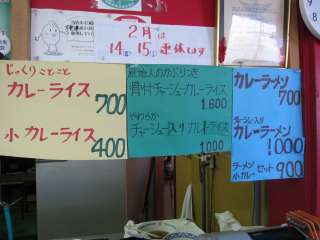 2月は
14(金)、15(土)連休します
じっくりことこと
カレーライス
700
小 カレーライス
400
原始人のかぶりつき
骨付チャーシューカレーライス
1.600
やわらか
チャーシュー入りカレーライス
1.000
カレーラーメン
700
チャーシュー入り
カレーラーメン
1000
ラーメン
小カレー
セット 900